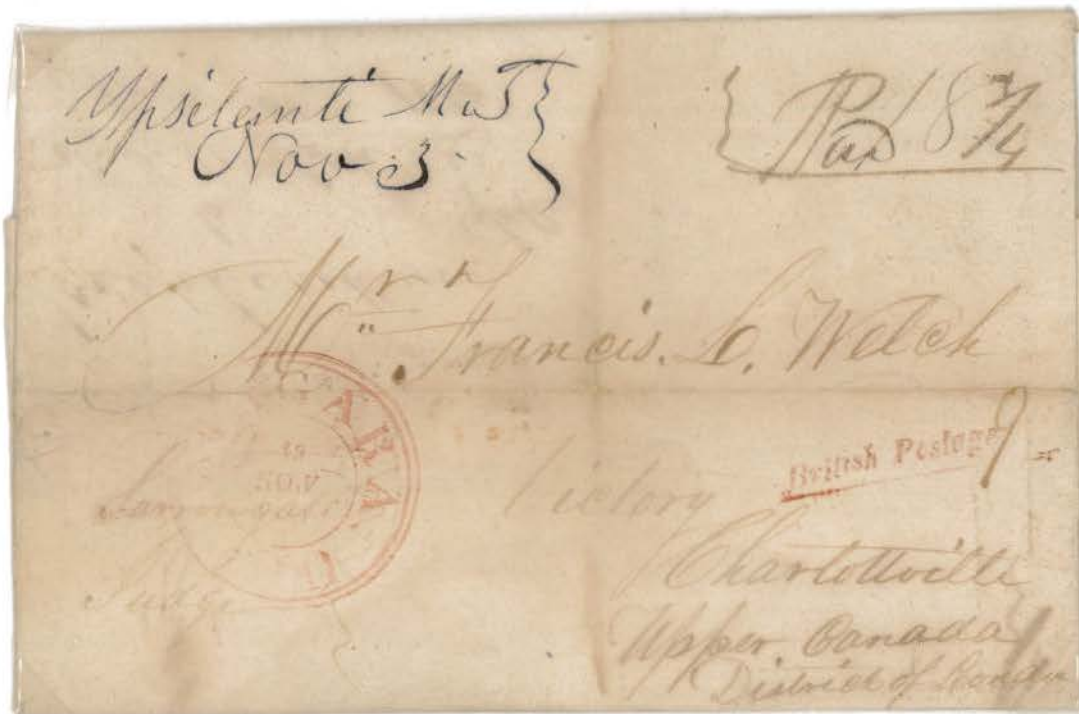 Ypsilanti M. T
Nov 3
Paid 18 3/4
Mr. Francis. L. Welch
Victory
British Postage
9
NOV
Charlottville
Upper Canada
District of London